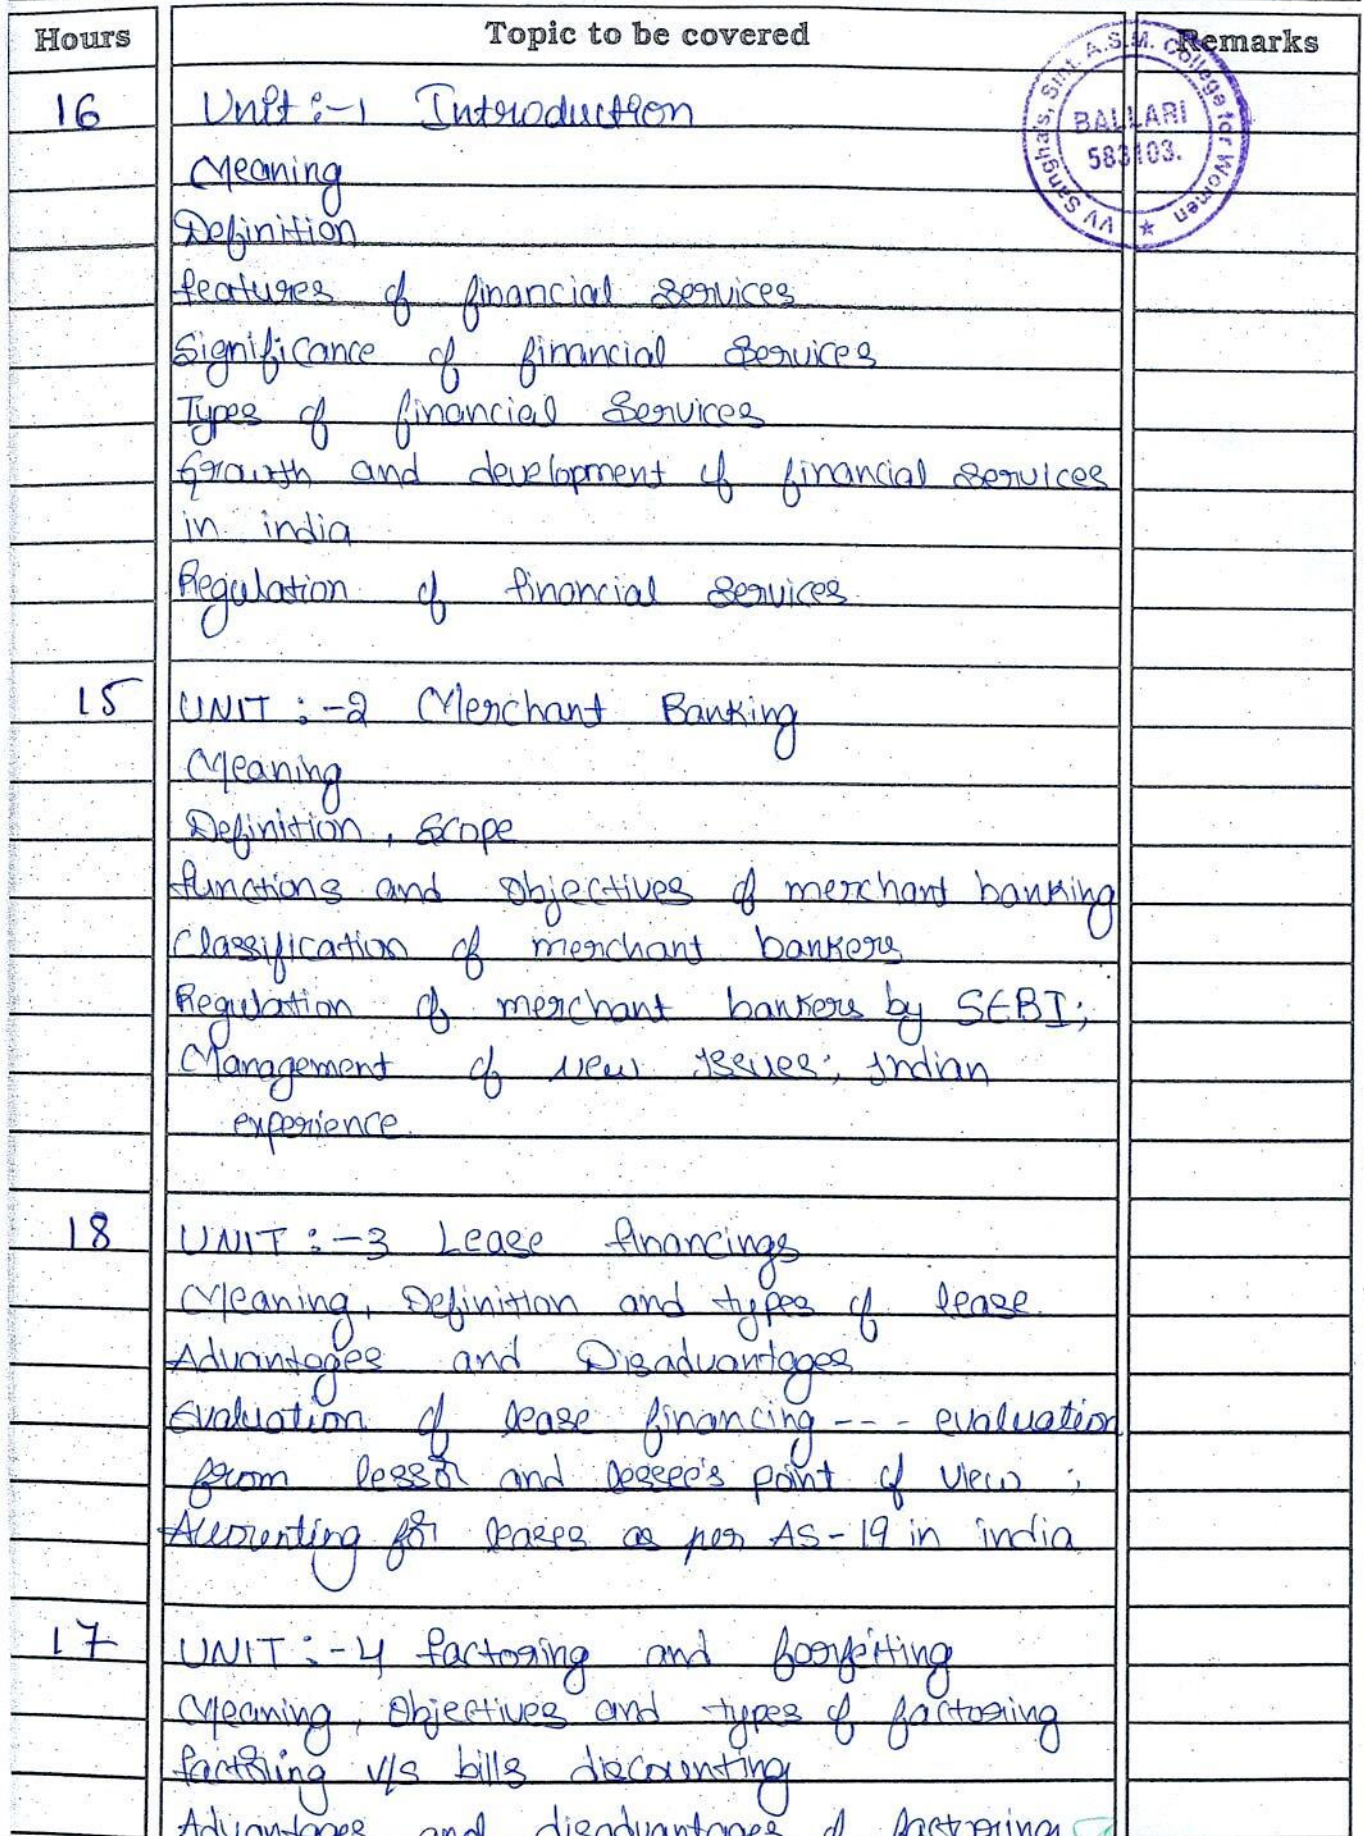 Hours Topic to be covered Remarks
VV Sangha's, Smt. A.S.M. College for Women ★
BALLARI
583103.
16 Unit :-1 Introduction
Meaning
Definition
features of financial services
Significance of financial services
Types of financial services
Growth and development of financial services
in india
Regulation of financial services
15 UNIT :-2 Merchant Banking
Meaning
Definition, Scope
functions and objectives of merchant banking
Classification of merchant bankers
Regulation of merchant bankers by SEBI;
Management of new issues; Indian
experience.
18 UNIT :-3 Lease financings
Meaning, Definition and types of lease.
Advantages and Disadvantages
Evaluation of lease financing --- evaluation
from lessor and lessee's point of view ;
Accounting for leases as per AS-19 in india
17 UNIT :-4 factoring and forfeiting
Meaning, Objectives and types of factoring
factoring v/s bills discounting
Advantages and disadvantages of factoring